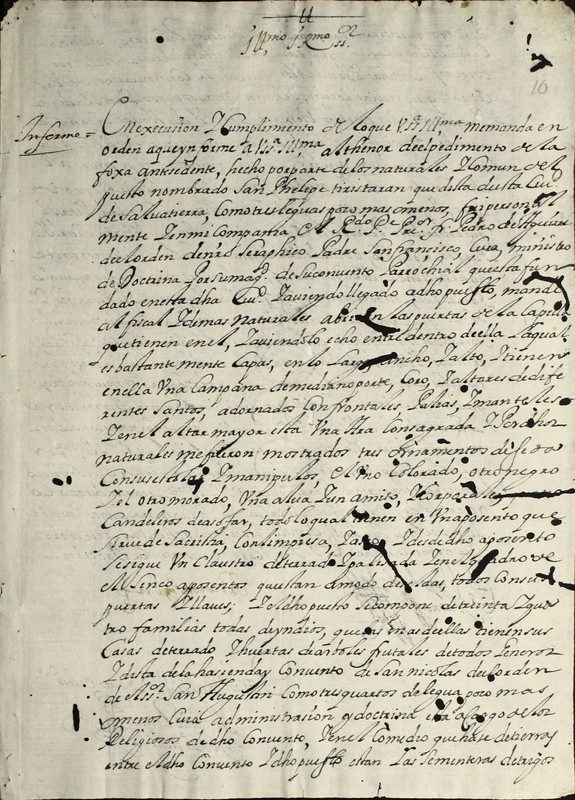 Ill,mo y R,mo Sor
10
Informo =
En execusion y Cumplimiento de lo que V.S.a Ill,ma me manda en
orden a que ynforme a V.S.a Ill,ma al thenor de el pedimento de la
foxa antesedente, hecho por parte de los naturales y Comun del
puesto nombrado San Phelipe tiristaran que dista de esta Ciud
de Saluatierra, Como tres leguas poco mas o menos, fui personal
mente y en mi Compañia el R.do P. Pe. fr. Pedro de
de el orden de nro Seraphico Padre San francisco, Cura, ministro
de Doctrina por su magd. de su conuento Parrochial questa fun
dado en esta dha Ciud. y auiendo llegado a dho pueblo, mande
al fiscal y demas naturales abrir las puertas de la Capilla
que tienen en el, y auiendolo echo entre dentro de ella la qual
es bastantemente Capas, en lo largo, ancho, y alto, y tienen
en ella Vna Campana de mediano porte, Coro, y altares de dife
rentes Santos, adornados Con frontales, Palias, y manteles
y en el altar mayor esta Vna Ara Consagrada y Por dhos
naturales me fueron mostrados tres Ornamentos de seda
Con sus estolas y manipulos, el Vno Colorado, otro negro
y el otro morado, Vna alua y un amito, y Corporales
Candeleros de asofar, todo lo qual tienen en Vn aposento que
sirue de Sacristia, Con limpiesa, y aseo y desde dho aposento
se sigue Vn Claustro de terrado y en el quadro de
el Sinco aposentos questan a modo de seldas, todos Con sus
puertas y llaues; y el dho puesto se compone de treinta y qua
tro familias todas de yndios, que las mas de ellas tienen sus
Casas de terrado y huertas de arboles frutales de todos generos
y dista de la hasienda y Convento de San nicolas de el orden
de N.S.or San Augustin Como tres quartos de legua poco mas
o menos Cuia administrasion y doctrina esta a cargo de los
Religiosos de dho Convento, y en el Comedio que hase de tierras
entre el dho Convento y dho pueblo estan las Sementeras de trigos